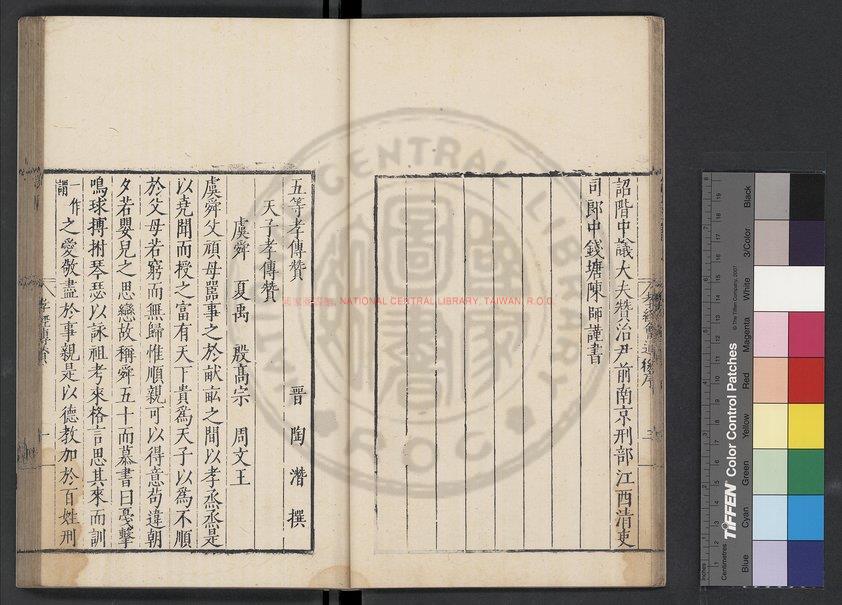 詔階中議大夫贊治尹前南京刑部江西清吏
司郎中錢塘陳師謹書
五等孝傳贊 晉陶潛撰
天子孝傳贊
虞舜 夏禹 殷高宗 周文王
虞舜父頑母嚚事之於畎畝之間以孝烝烝是
以堯聞而授之富有天下貴爲天子以爲不順
於父母若窮而無歸惟順親可以得意苟違朝
夕若嬰兒之思戀故稱舜五十而慕書曰戛擊
鳴球搏拊琴瑟以詠祖考來格言思其來而訓
一作謂之愛敬盡於事親是以德教加於百姓刑
孝經傳贊 一
國家圖書館, NATIONAL CENTRAL LIBRARY, TAIWAN, R.O.C.
NATIONAL CENTRAL LIBRARY
TIFFEN Color Control Patches
© The Tiffen Company, 2007
Blue Cyan Green Yellow Red Magenta White 3/Color Black
Inches
Centimetres